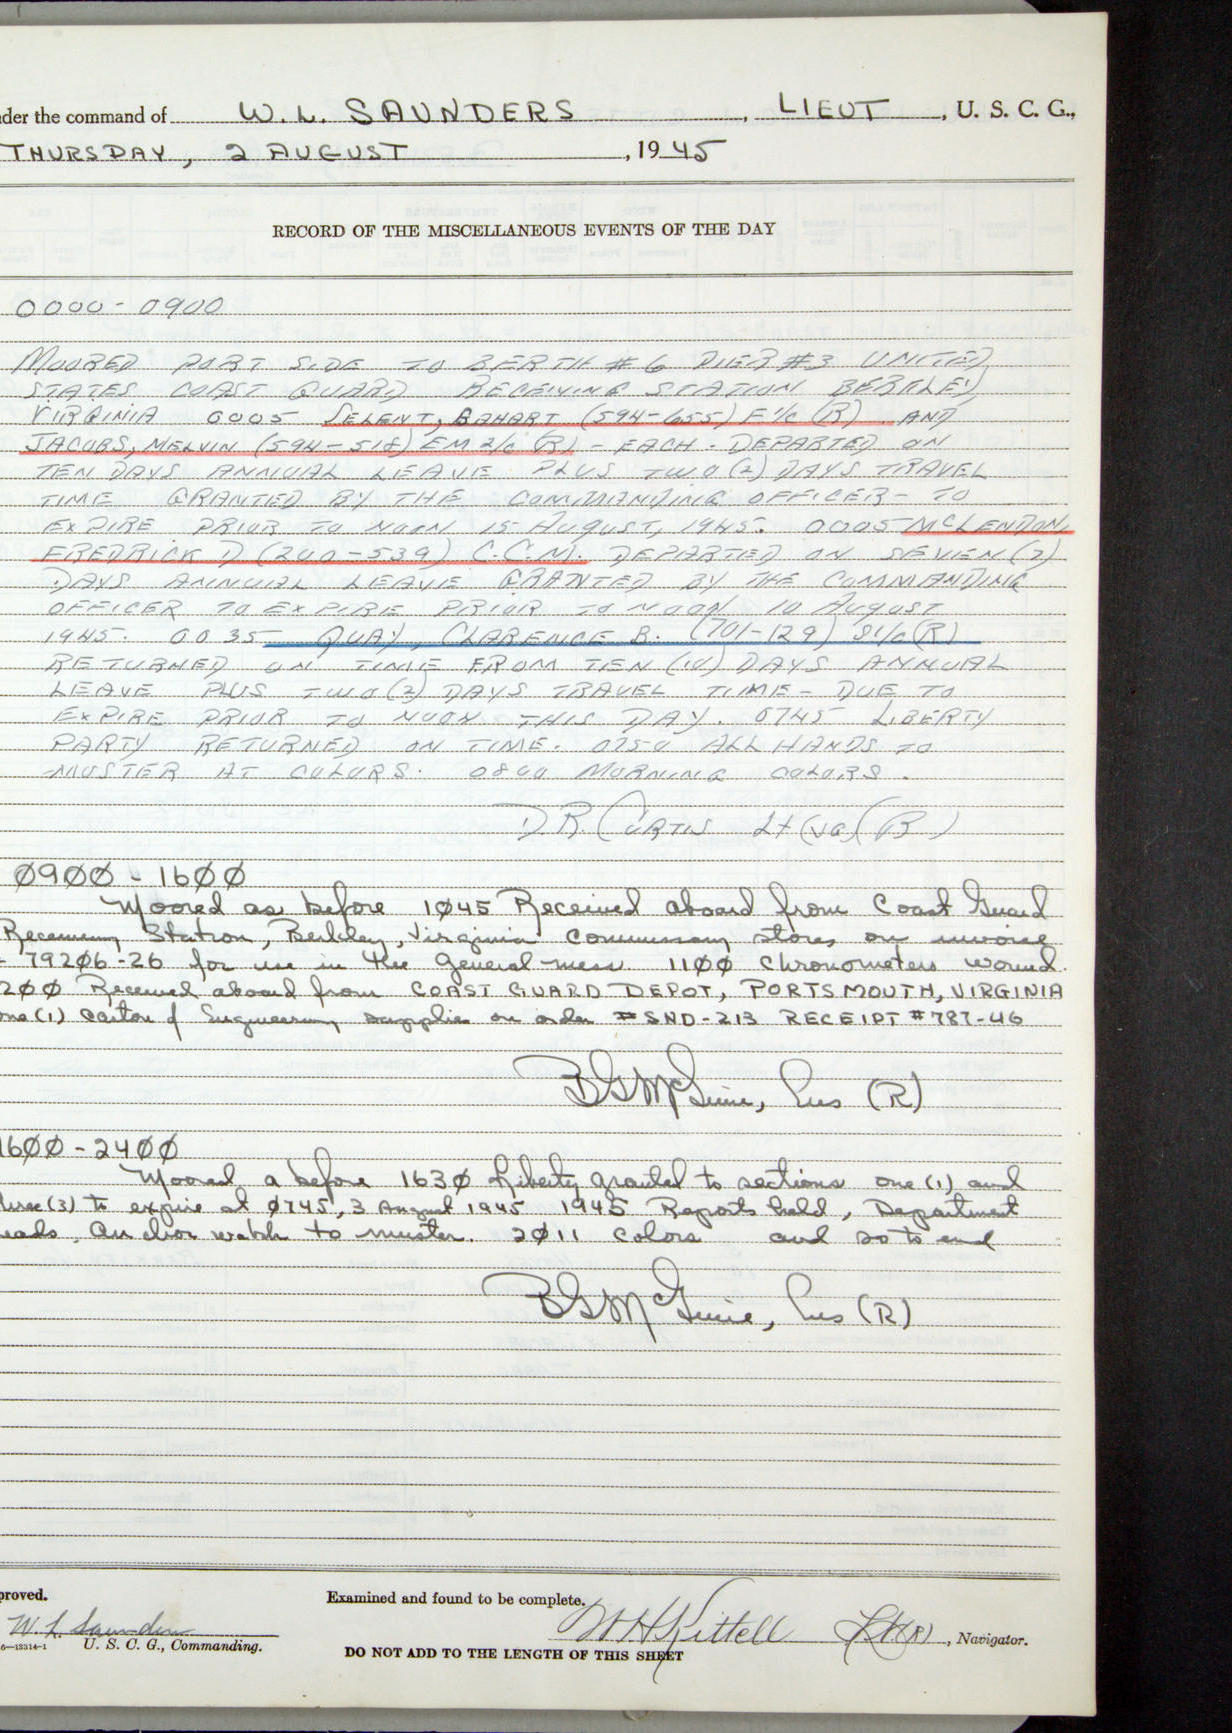 nder the command of W. L. SAUNDERS, LIEUT, U. S. C. G.,
THURSDAY, 2 AUGUST, 1945
RECORD OF THE MISCELLANEOUS EVENTS OF THE DAY
0000-0900
MOORED PORT SIDE TO BERTH #6 PIER #3 UNITED
STATES COAST GUARD RECEIVING STATION BERKLEY,
VIRGINIA 0005 SELENT, BAHART (594-655) F1/c (R) AND
JACOBS, MELVIN (594-518) EM 2/c (R) - EACH - DEPARTED ON
TEN DAYS ANNUAL LEAVE PLUS TWO (2) DAYS TRAVEL
TIME GRANTED BY THE COMMANDING OFFICER - TO
EXPIRE PRIOR TO NOON 15 AUGUST, 1945. 0005 McLENDON,
FREDRICK D (200-539) C.C.M. DEPARTED ON SEVEN (7)
DAYS ANNUAL LEAVE GRANTED BY THE COMMANDING
OFFICER TO EXPIRE PRIOR TO NOON 10 AUGUST
1945. 0035 - QUAY, CLARENCE B. (701-129) S1/c (R)
RETURNED ON TIME FROM TEN (10) DAYS ANNUAL
LEAVE PLUS TWO (2) DAYS TRAVEL TIME - DUE TO
EXPIRE PRIOR TO NOON THIS DAY. 0745 LIBERTY
PARTY RETURNED ON TIME. 0750 ALL HANDS TO
MUSTER AT COLORS. 0800 MORNING COLORS.
D R. CURTIS Lt (JG) (R)
0900 - 1600
Moored as before 1045 Received aboard from Coast Guard
Receiving Station, Berkley, Virginia commissary stores on invoice
- 79206-26 for use in the general mess 1100 Chronometers wound.
200 Received aboard from COAST GUARD DEPOT, PORTSMOUTH, VIRGINIA
one (1) carton of Engineering supplies on order #SND-213 RECEIPT #787-46
B G McGuire, Ens (R)
1600 - 2400
Moored a before 1630 Liberty granted to sections one (1) and
three (3) to expire at 0745, 3 August 1945 1945 Reports held, Department
eads. Anchor watch to muster. 2011 Colors and so to end
B G McGuire, Ens (R)
proved.
Examined and found to be complete.
W. L. Saunders
U. S. C. G., Commanding.
W H Kittell Lt (R), Navigator.
6—13314-1
DO NOT ADD TO THE LENGTH OF THIS SHEET